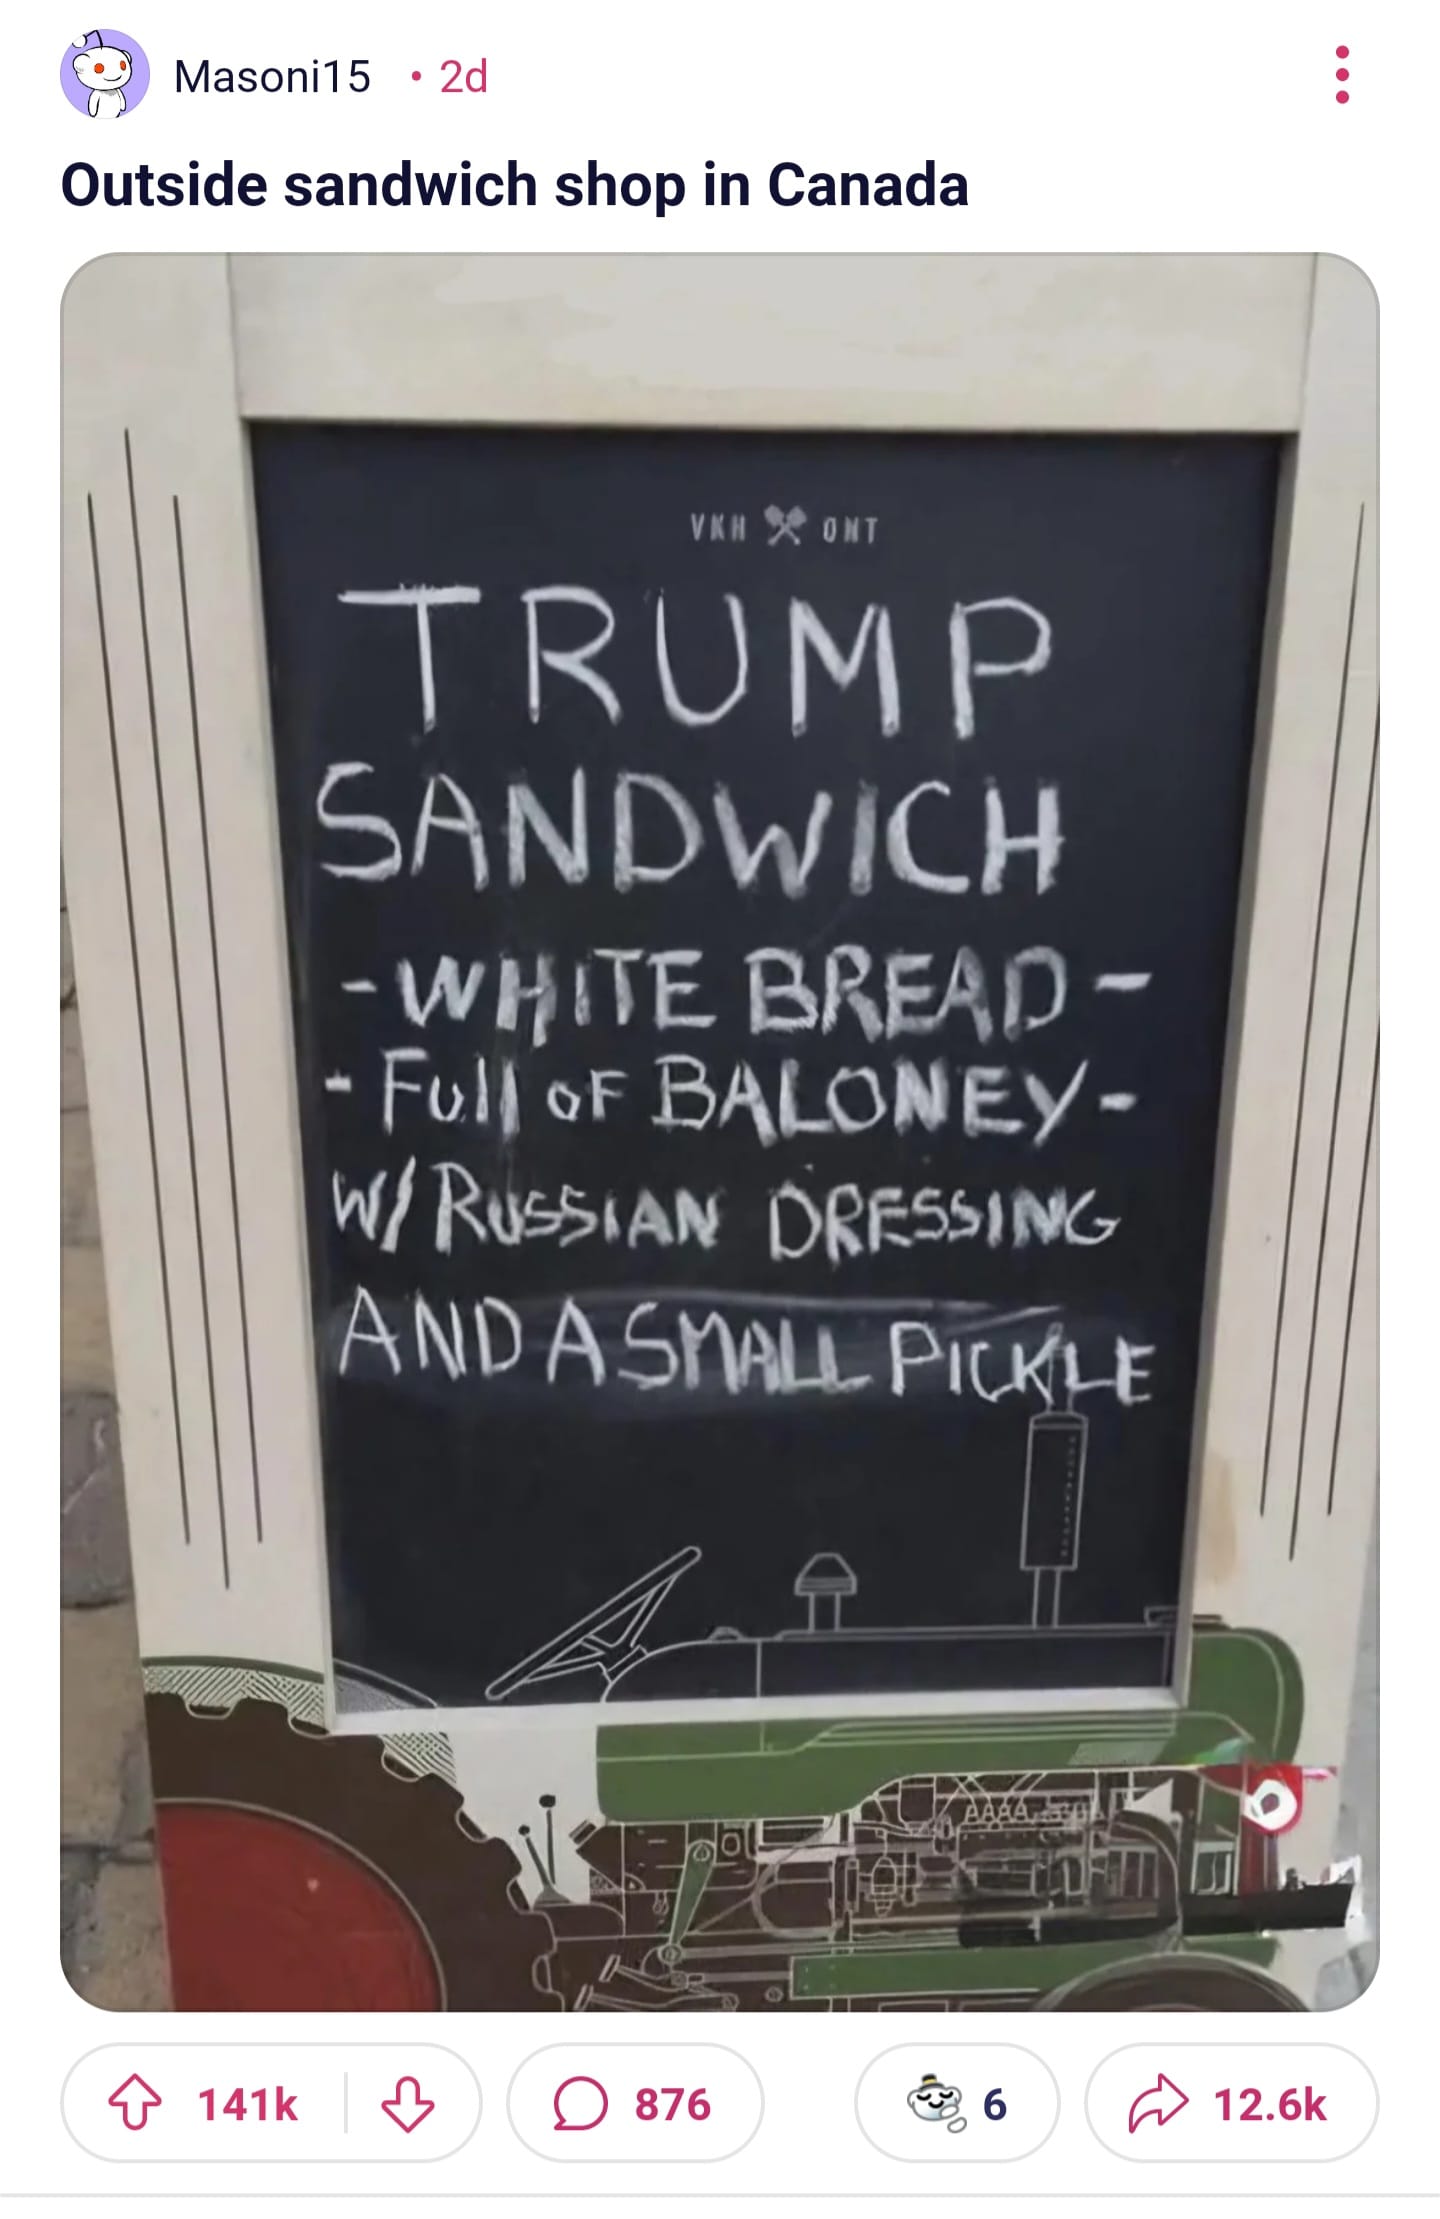 Masoni15 • 2d
Outside sandwich shop in Canada
VKH ONT
TRUMP
SANDWICH
- WHITE BREAD -
- Full OF BALONEY -
W/ RUSSIAN DRESSING
AND A SMALL PICKLE
141k 876 6 12.6k